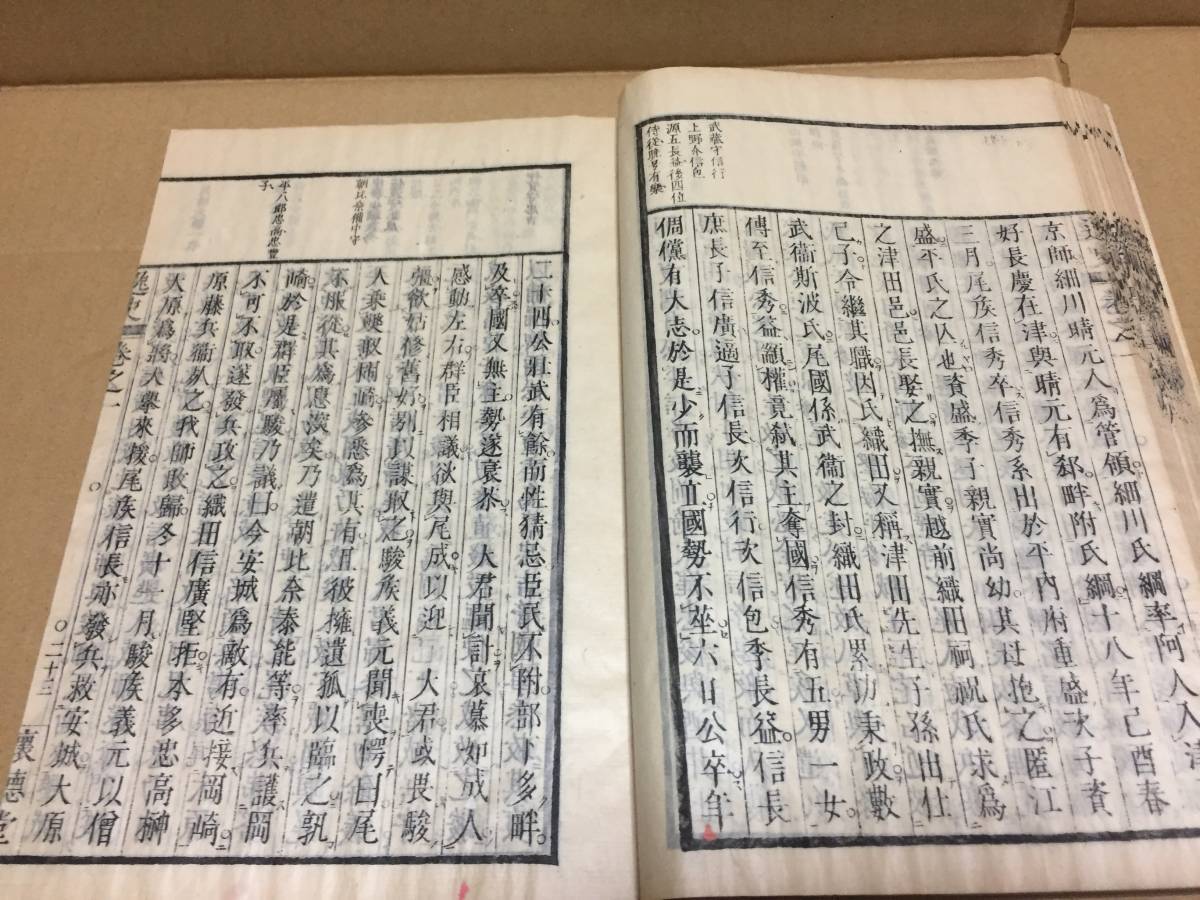 武藏守信行
上野介信包
源五長益後四位
侍從
京師細川晴元入爲管領細川氏綱率阿人入津
好長慶在津與晴元有郄畔附氏綱十八年己酉春
三月尾矦信秀卒信秀系出於平內府重盛次子資
盛平氏之囚也資盛季子親實尚幼其母抱之匿江
之津田邑邑長娶之撫親實越前織田祠祝氏求爲
己子令繼其職因氏織田又稱津田先生子孫出仕
武衞斯波氏尾國係武衞之封織田氏累功秉政數
傳至信秀益顓權竟弑其主奪國信秀有五男一女
庶長子信廣適子信長次信行次信包季長益信長
倜儻有大志於是少而襲立國勢不㘴六日公卒年
朝比奈備中守
平八郎忠高忠豐
子
二十四公壯武有餘而性猜忌臣民不附部下多畔
及卒國又無主勢遂衰苶大君聞訃哀慕如成人
感動左右群臣相議欲與尾成以迎大君或畏駿
彊欲姑修舊好別以謀取之駿矦義元聞喪愕曰尾
人乘釁取岡崎參悉爲其有且彼擁遺孤以臨之孰
不服從其爲患滋矣乃遣朝比奈泰能等率兵護岡
崎於是群臣屬駿乃議曰今安城爲敵有近接岡崎
不可不取遂發兵攻之織田信廣堅拒本多忠高榊
原藤兵衞
死之我師敗歸冬十一月駿矦義元以僧
大原爲將大擧來援尾矦信長亦發兵救安城大原
逸史 卷之一
二十三
懷德堂